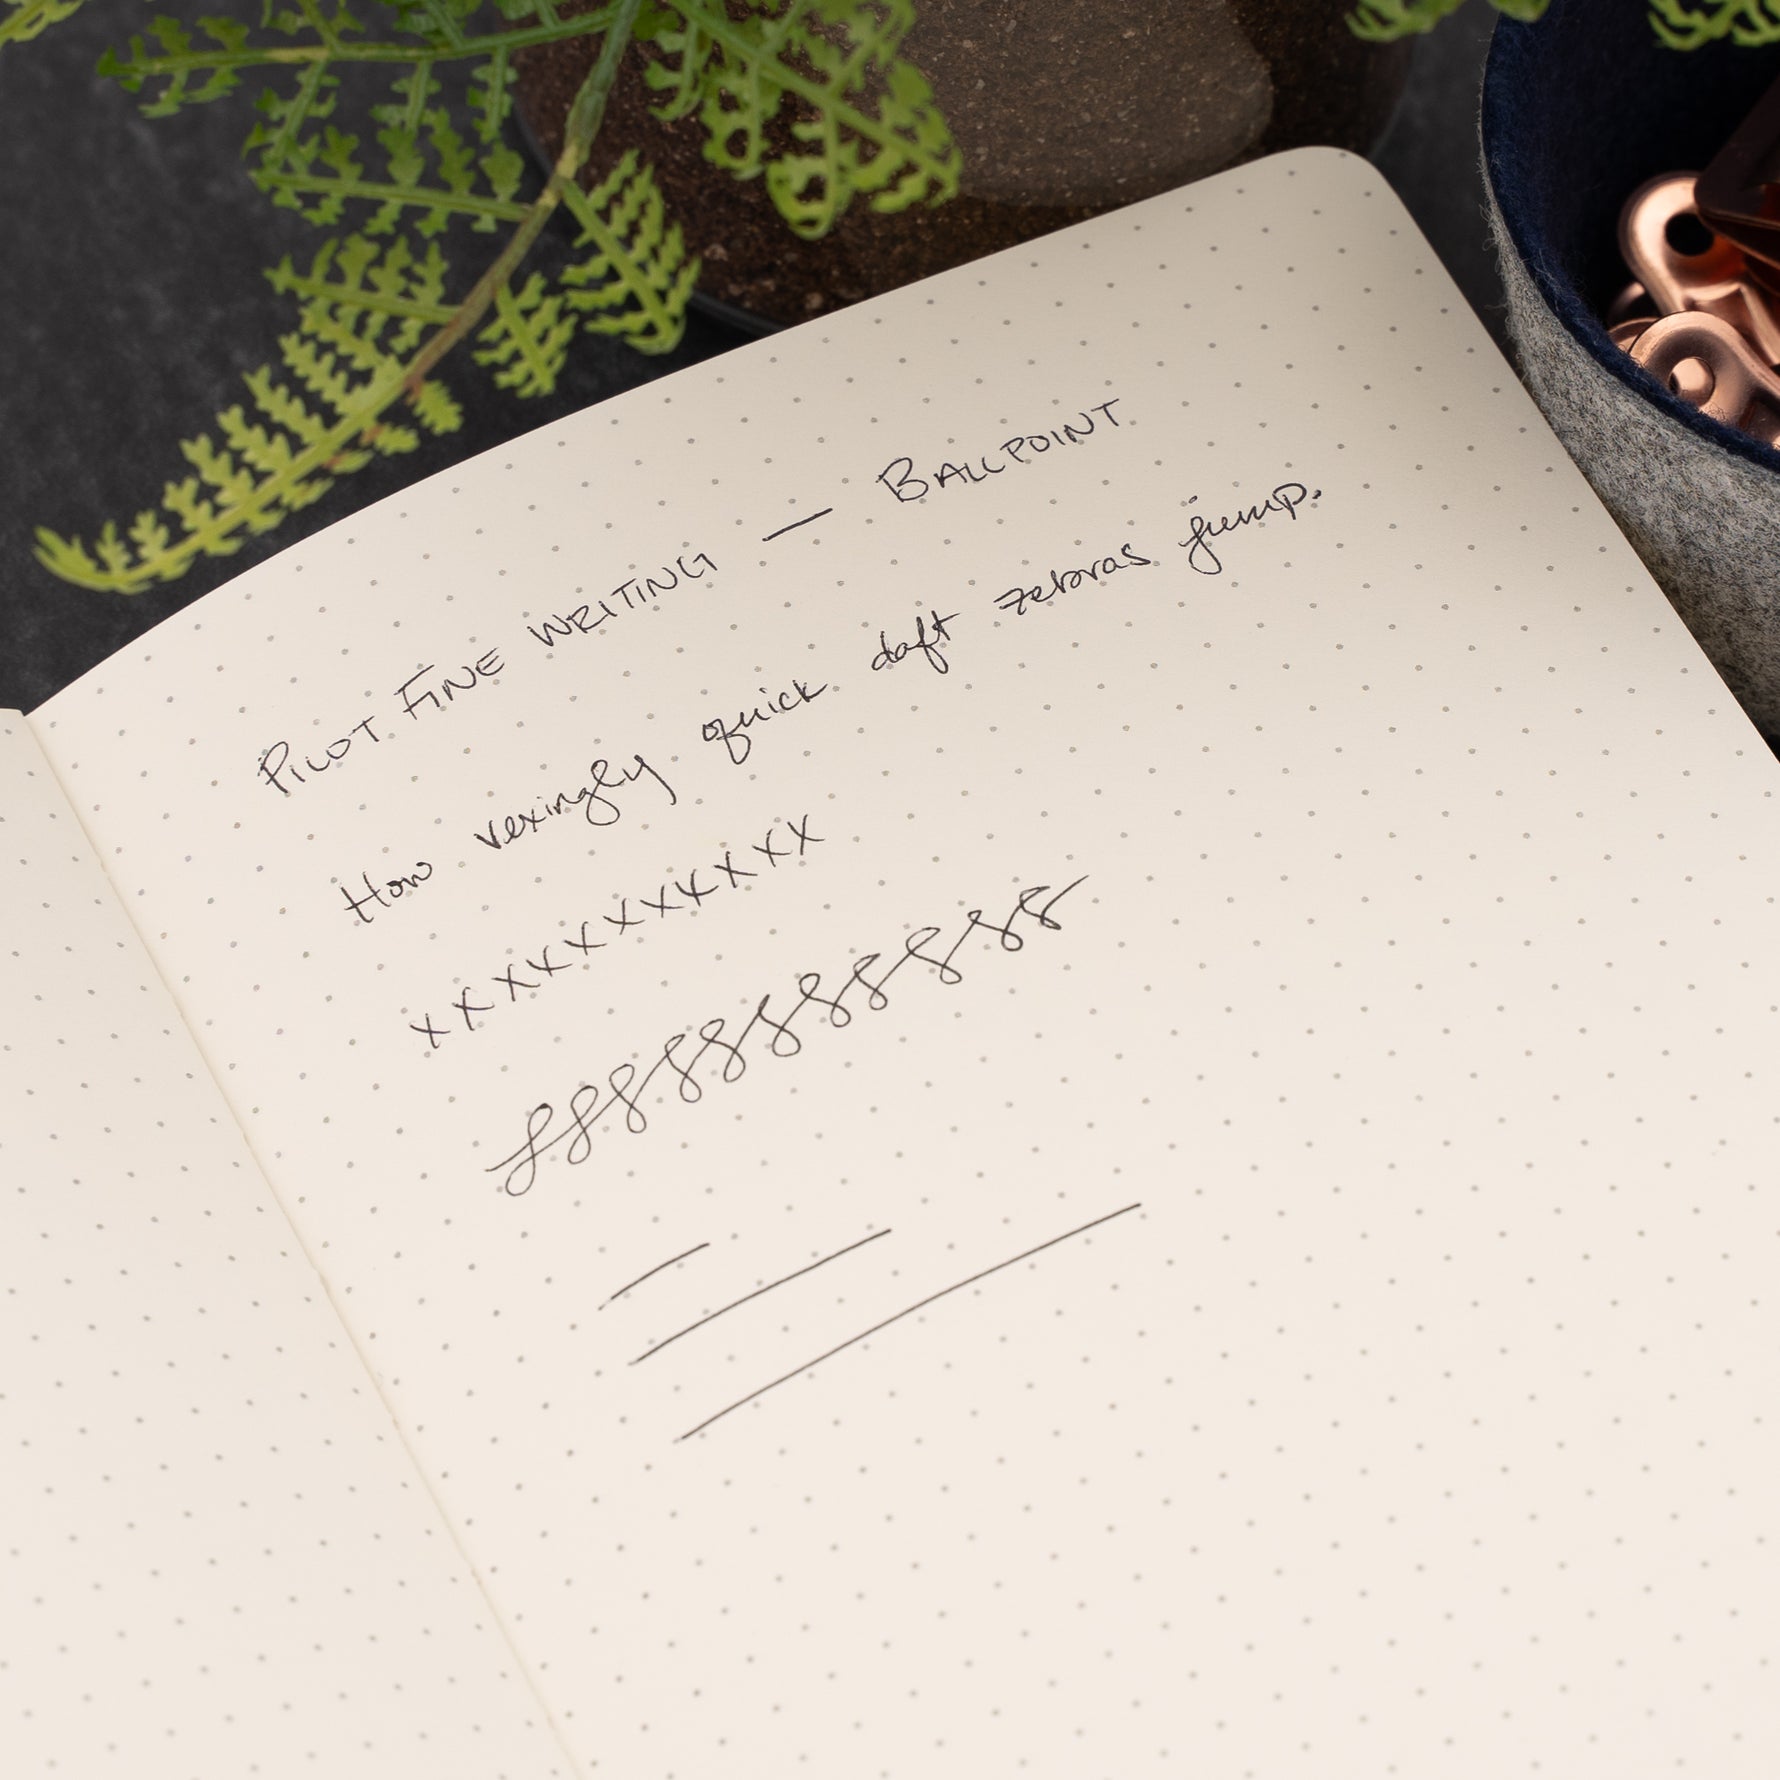 PILOT FINE WRITING — BALLPOINT
How vexingly quick daft zebras jump.
xxxxxxxxxxx